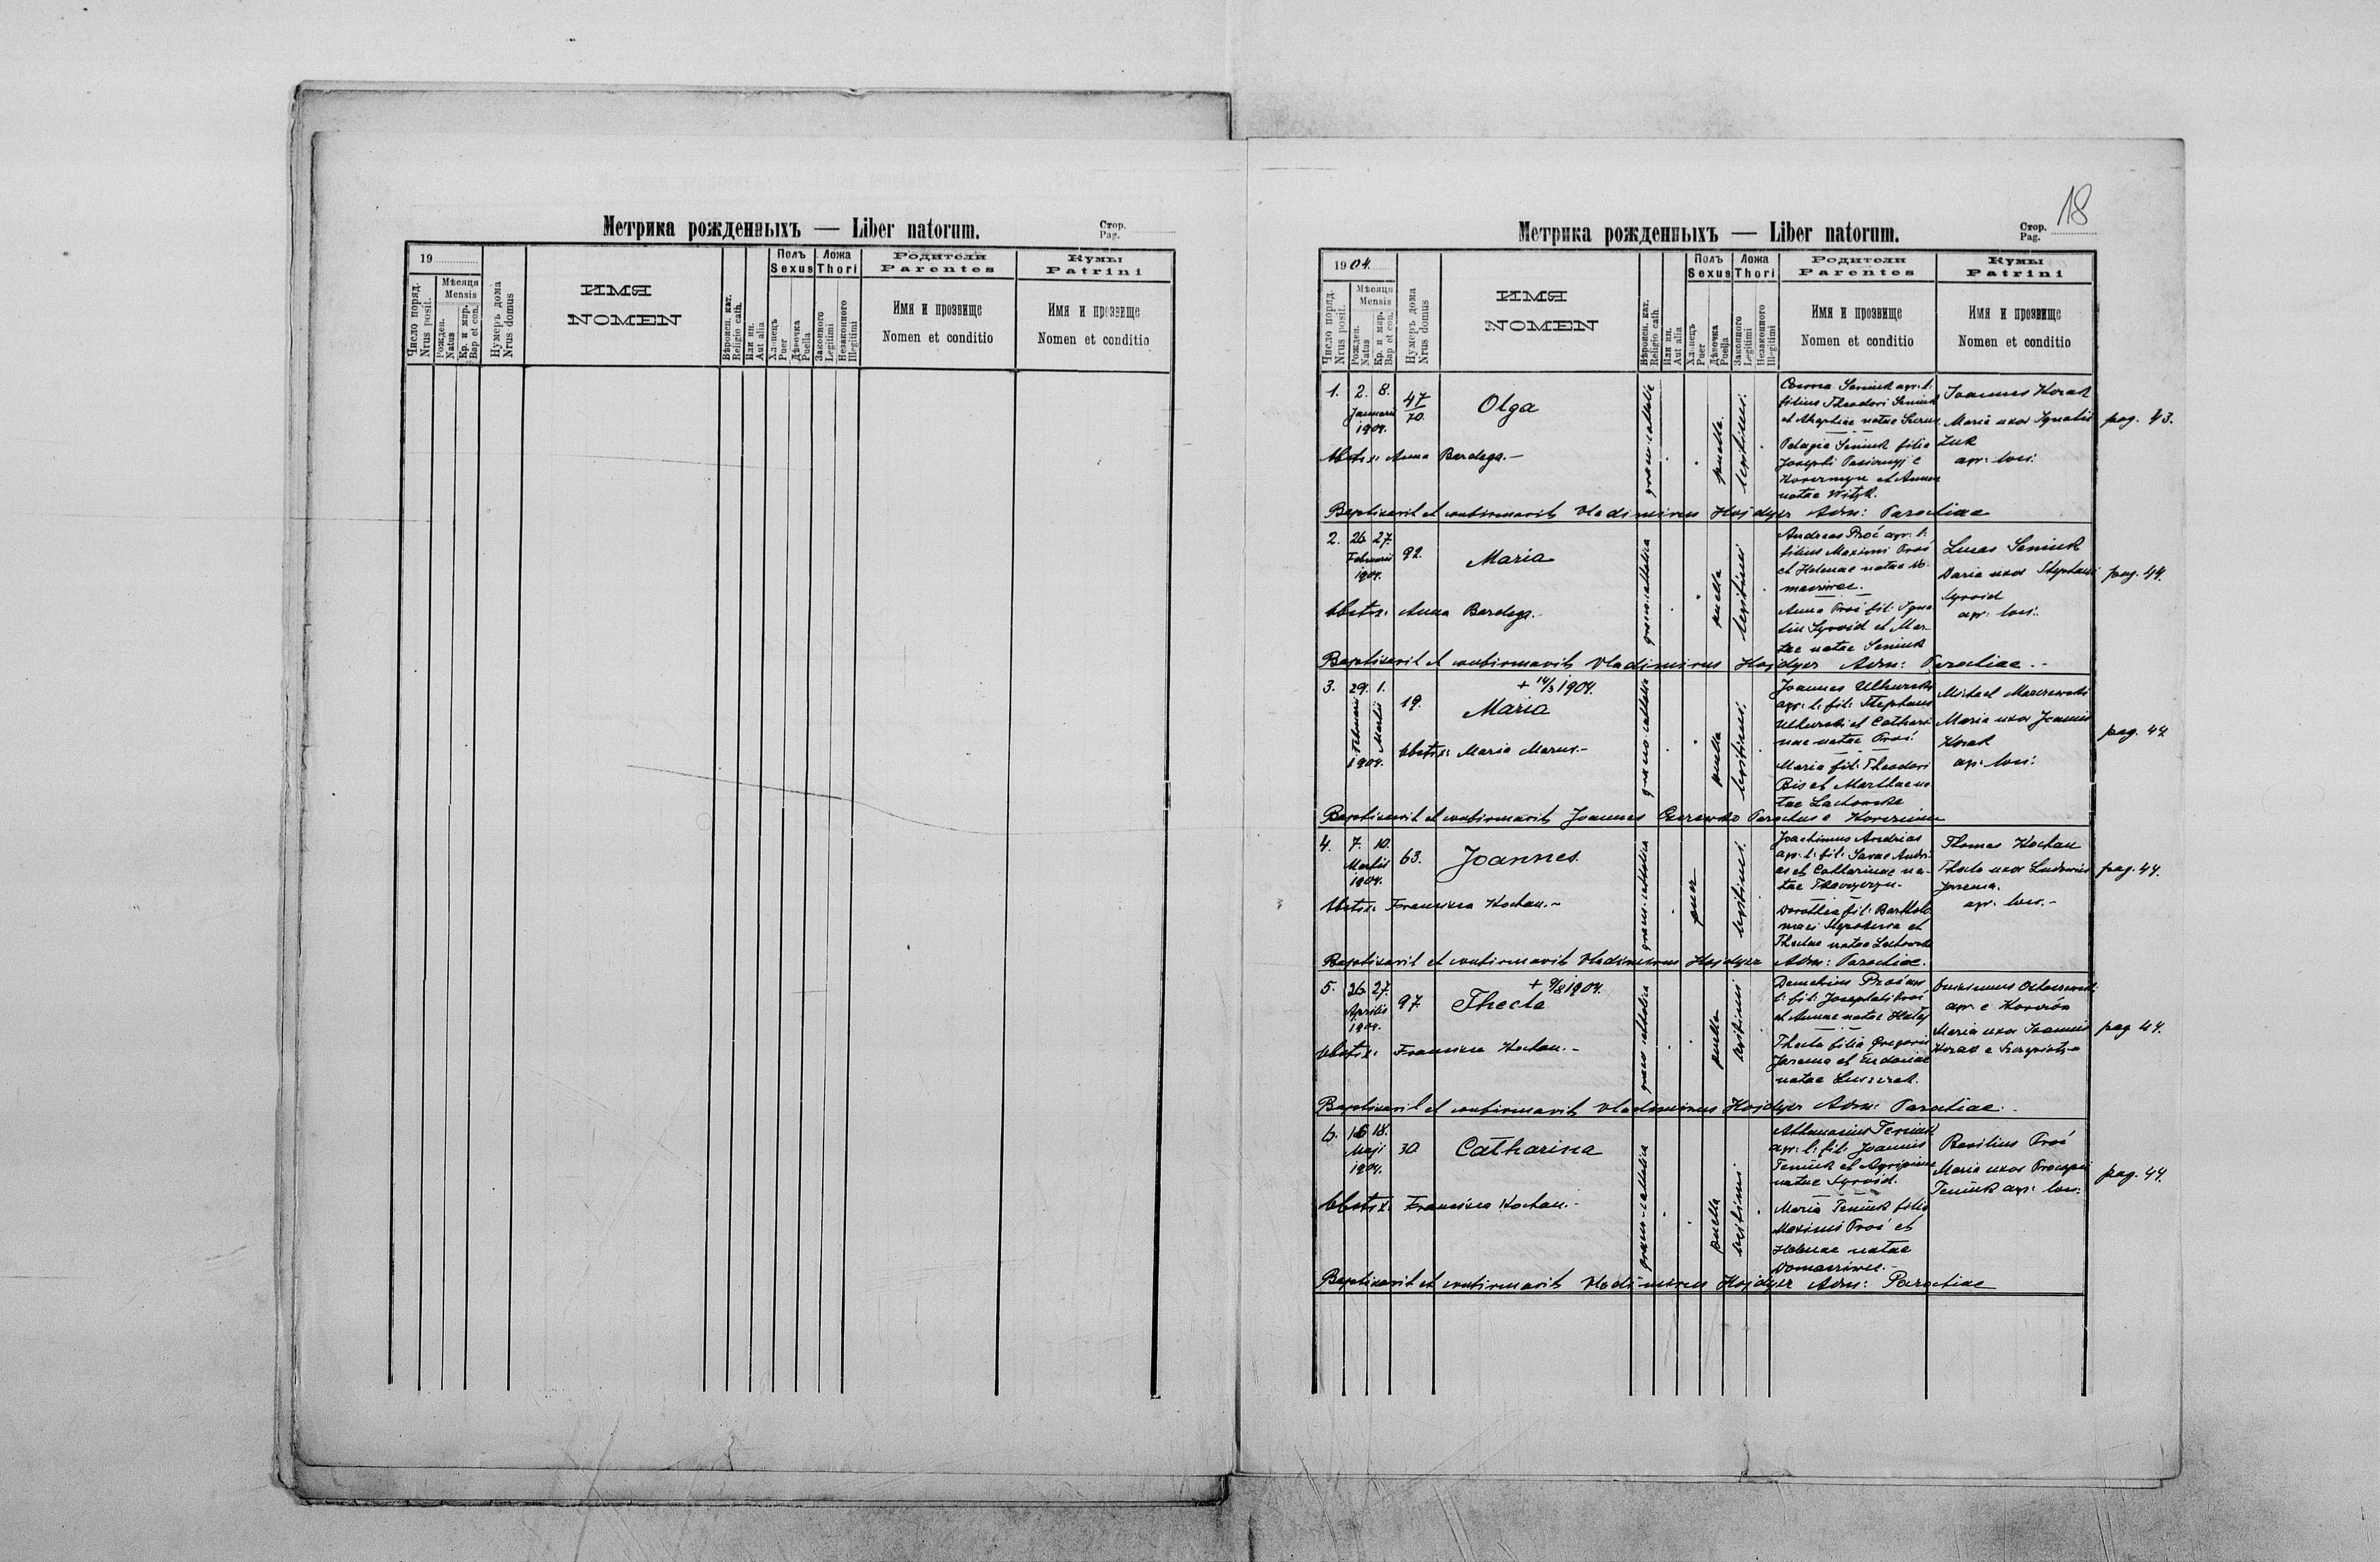 Метрика рожденныхъ — Liber natorum.
Стор.
Pag.
19
Число поряд.
Nrus posit.
Мѣсяця
Mensis
Рожден.
Natus
Кр. и мѵр.
Bap et con.
Нумеръ дома
Nrus domus
ИМЯ
NOMEN
Вѣроисп. кат.
Religio cath.
Или ин.
Aut alia
Полъ
Sexus
Хлопецъ
Puer
Дѣвочка
Puella
Ложа
Thori
Законного
Legitimi
Незаконного
Illegitimi
Родители
Parentes
Имя и прозвище
Nomen et conditio
Кумы
Patrini
Имя и прозвище
Nomen et conditio
18
Метрика рожденныхъ — Liber natorum.
Стор.
Pag.
1904
Число поряд.
Nrus posit.
Мѣсяця
Mensis
Рожден.
Natus
Кр. и мѵр.
Bap et con.
Нумеръ дома
Nrus domus
ИМЯ
NOMEN
Вѣроисп. кат.
Religio cath.
Или ин.
Aut alia
Полъ
Sexus
Хлопецъ
Puer
Дѣвочка
Puella
Ложа
Thori
Законного
Legitimi
Незаконного
Illegitimi
Родители
Parentes
Имя и прозвище
Nomen et conditio
Кумы
Patrini
Имя и прозвище
Nomen et conditio
1. 2. 8.
Januarii
1904.
47
70.
Olga
graeco-catholica
puella.
legitimi.
Cosma Seniuk agr. l.
filius Theodori Seniuk
natae
Pelagia Seniuk filia
Josephi
et Annae
natae Wityk.
Joannes Kozak
Maria uxor Ignatii
Żuk
agr. loci.
pag. 43.
Obstx: Anna Bardega.-
Baptisavit et confirmavit Vladimirus Hojdyer Adm: Parochiae
2. 26 27.
Februarii
1904.
92.
Maria
graeco-catholica
puella
legitimi
Andreas Proć agr. l.
filius Maximi Proć
et Helenae natae Do-
Anna Proć fil: Igna-
tii Syroid et Mar-
tae natae Seniuk
Lucas Seniuk
Daria uxor Stephani
Syroid
agr. loci.
pag. 44.
Obstx: Anna Bardega.
Baptisavit et confirmavit Vladimirus Hojdyer Adm: Parochiae.-
3. 29. 1.
Februarii
Martii
1904.
19.
+ 14/3 1904.
Maria
graeco-catholica
puella
legitimi.
Joannes
agr. l. fil: Stephani
et Cathari-
nae natae Proć.
Maria fil: Theodori
Bis et Marthae na-
tae Lachowska
Michael
Maria uxor Joannis
Kozak
agr. loci.
pag. 44
Obstx: Maria Marus.-
Baptisavit et confirmavit Joannes Parochus e
4. 7. 10.
Martii
1904.
63.
Joannes.
graeco-catholica
puer
legitimi.
Joachimus Andrias
agr. l. fil: Savae Andri-
as et Catharinae na-
tae
Dorothea fil: Bartholo-
maei et
Theclae natae
Thomas Kochan
Thecla uxor Ludovici
Jarema.
agr. loci.-
pag. 44.
Obstx: Francisca Kochan.-
Baptisavit et confirmavit Vladimirus Hojdyer Adm: Parochiae.
5. 26 27.
Aprilis
1904.
97
+ 9/8 1904.
Thecla
graeco-catholica
puella
legitimi
Demetrius Proć agr.
l. fil: Josaphati Proć
et Annae natae
Thecla filia Gregorii
Jarema et Eudoxiae
natae
agr. e
Maria uxor Joannis
Kozak e
pag 44.
Obstx: Francisca Kochan.-
Baptisavit et confirmavit Vladimirus Hojdyer Adm: Parochiae.-
6. 16 18.
Maji
1904.
30
Catharina
graeco-catholica
puella
legitimi
Athanasius Teniuk
agr. l. fil: Joannis
Teniuk et Agripinae
natae Syroid.
Maria Teniuk filia
Maximi Proć et
Helenae natae
Basilius Proć
Maria uxor Procopii
Teniuk agr. loci.
pag. 44.
Obstx: Francisca Kochan.-
Baptisavit et confirmavit Vladimirus Hojdyer Adm: Parochiae